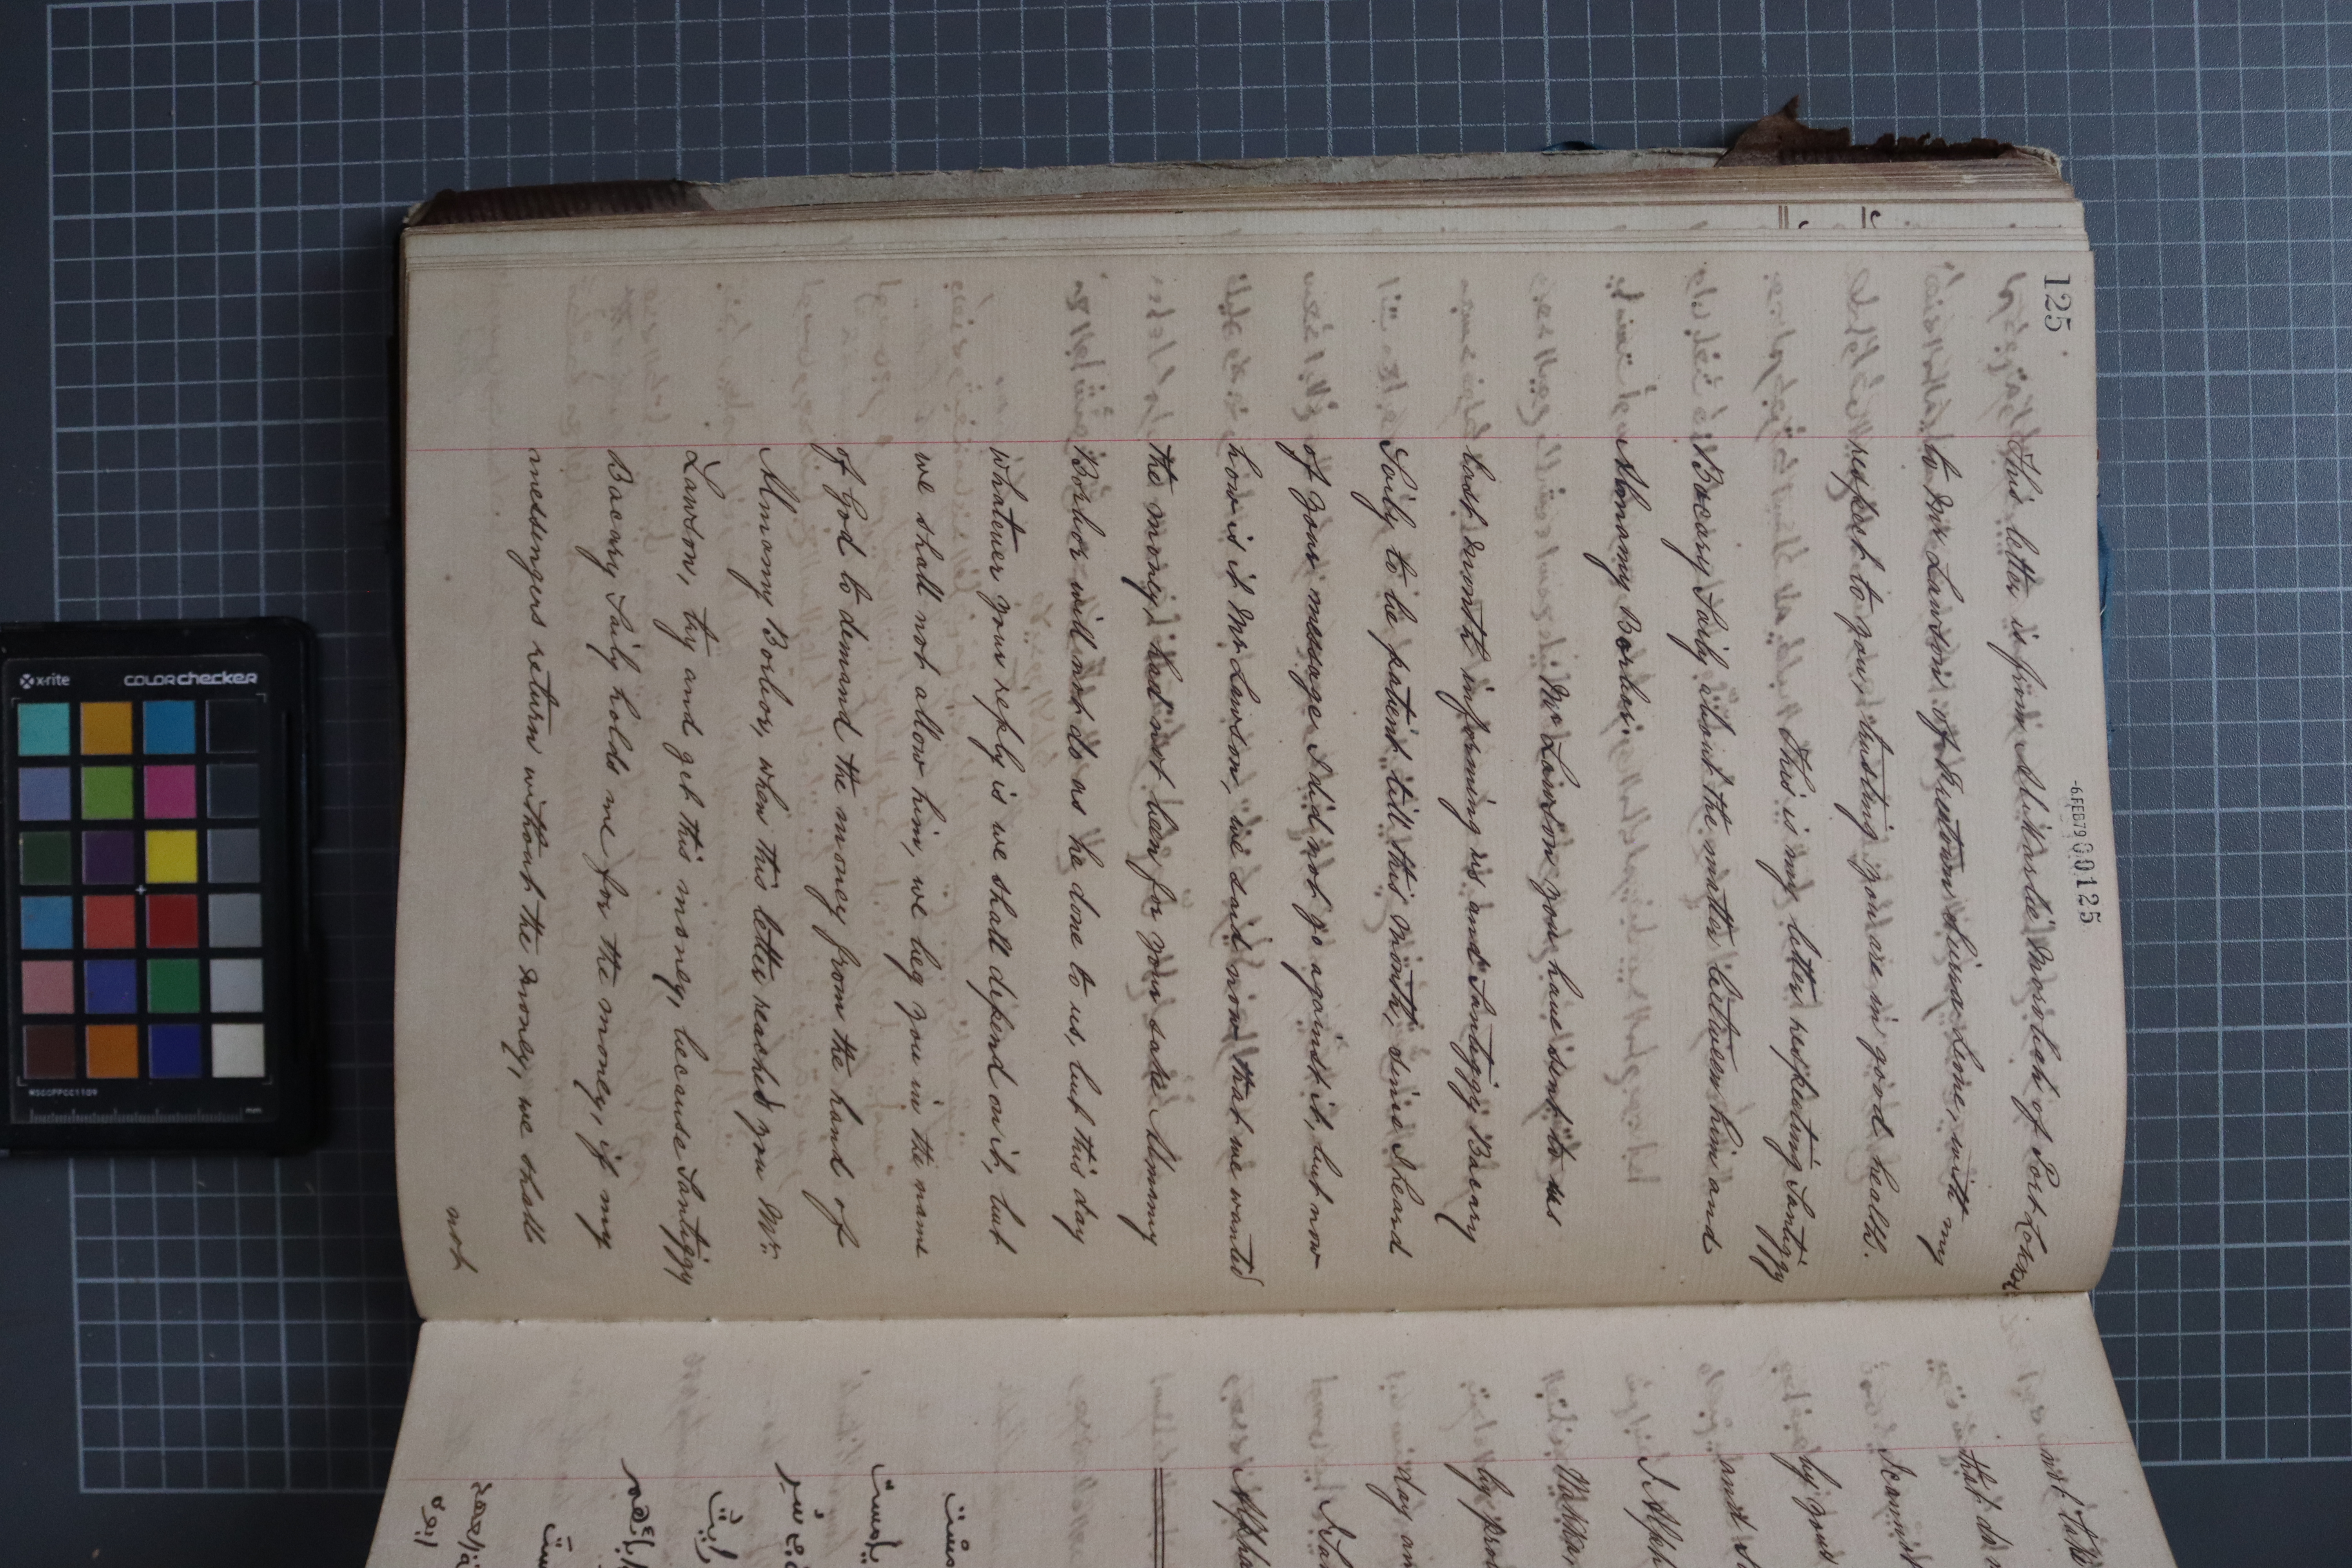 125
-6FEB79 00125
This letter is from Ali Kardie Morobah of Port Lokkoh
to Mr Lawson of Freetown Sierra Leone, with my
respect to you, trusting you are in good health.
This is my letter respecting Santiggy
Bocary Saily about the matter between him and
Almamy Borbor.
Mr Lawson you have sent to us
last month informing us and Santiggy Bacary
Saily to be patient till this month, since I heard
of your message I did not go against it, but now
how is it Mr Lawson, we said now that we wanted
the money, had not been for your sake Almamy
Borbor will not do as he done to us, but this day
whatever your reply is we shall depend on it, but
we shall not allow him, we beg you in the name
of God to demand the money from the hand of
Almamy Borbor, when this letter reached you Mr.
Lawson, try and get this money, because Santiggy
Bacary Saily holds me for the money, if my
messengers return without the money, we shall
not
not
that do
by your
and
I Alph
by
day an
Alpha
x-rite colorchecker
MSCCPPCC1109
mm